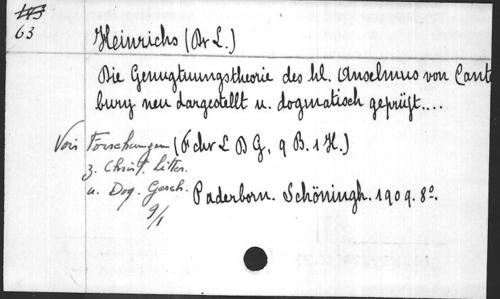 63
Heinrichs (Dr L.)
Die Genugtuungstheorie des hl. Anselmus von Cant
bury neu dargestellt u. dogmatisch geprüft....
Voir Forschungen (FchrLDG, 9 B. 1 H.)
z. Christ. Litter.
u. Dog. Gesch. Paderborn. Schöningh. 1909. 8º.
9/1